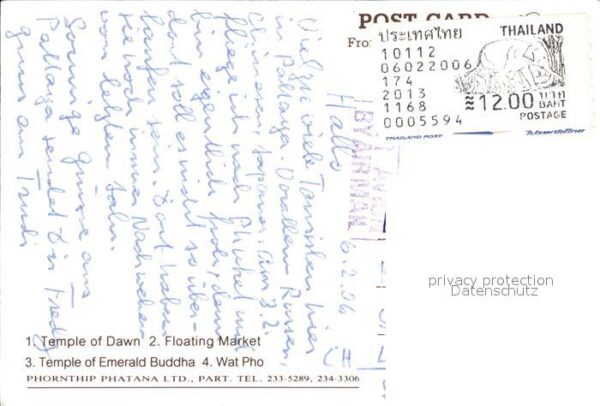 POST CARD
Fro
ประเทศไทย
THAILAND
10112
06022006
174
2013
1168
0005594
≋12.00 บาท
BAHT
POSTAGE
THAILAND POST
BY AIR MAIL
6.2.06
Hallo
Viel zu viele Touristen hier
in Pattaya. Vorallem Russen,
Chinesen, Japaner. Am 3.2.
fliege ich nach Phuket und
bin eigentlich froh, denn
dort soll es nicht so über-
laufen sein. Dort haben
sie noch immer Nachwehen
vom letzten Jahr.
Sonnige Grüsse aus
Pattaya sendet Dir Fredy
Gruss an Trudi
privacy protection
Datenschutz
1. Temple of Dawn 2. Floating Market
3. Temple of Emerald Buddha 4. Wat Pho
PHORNTHIP PHATANA LTD., PART. TEL. 233-5289, 234-3306